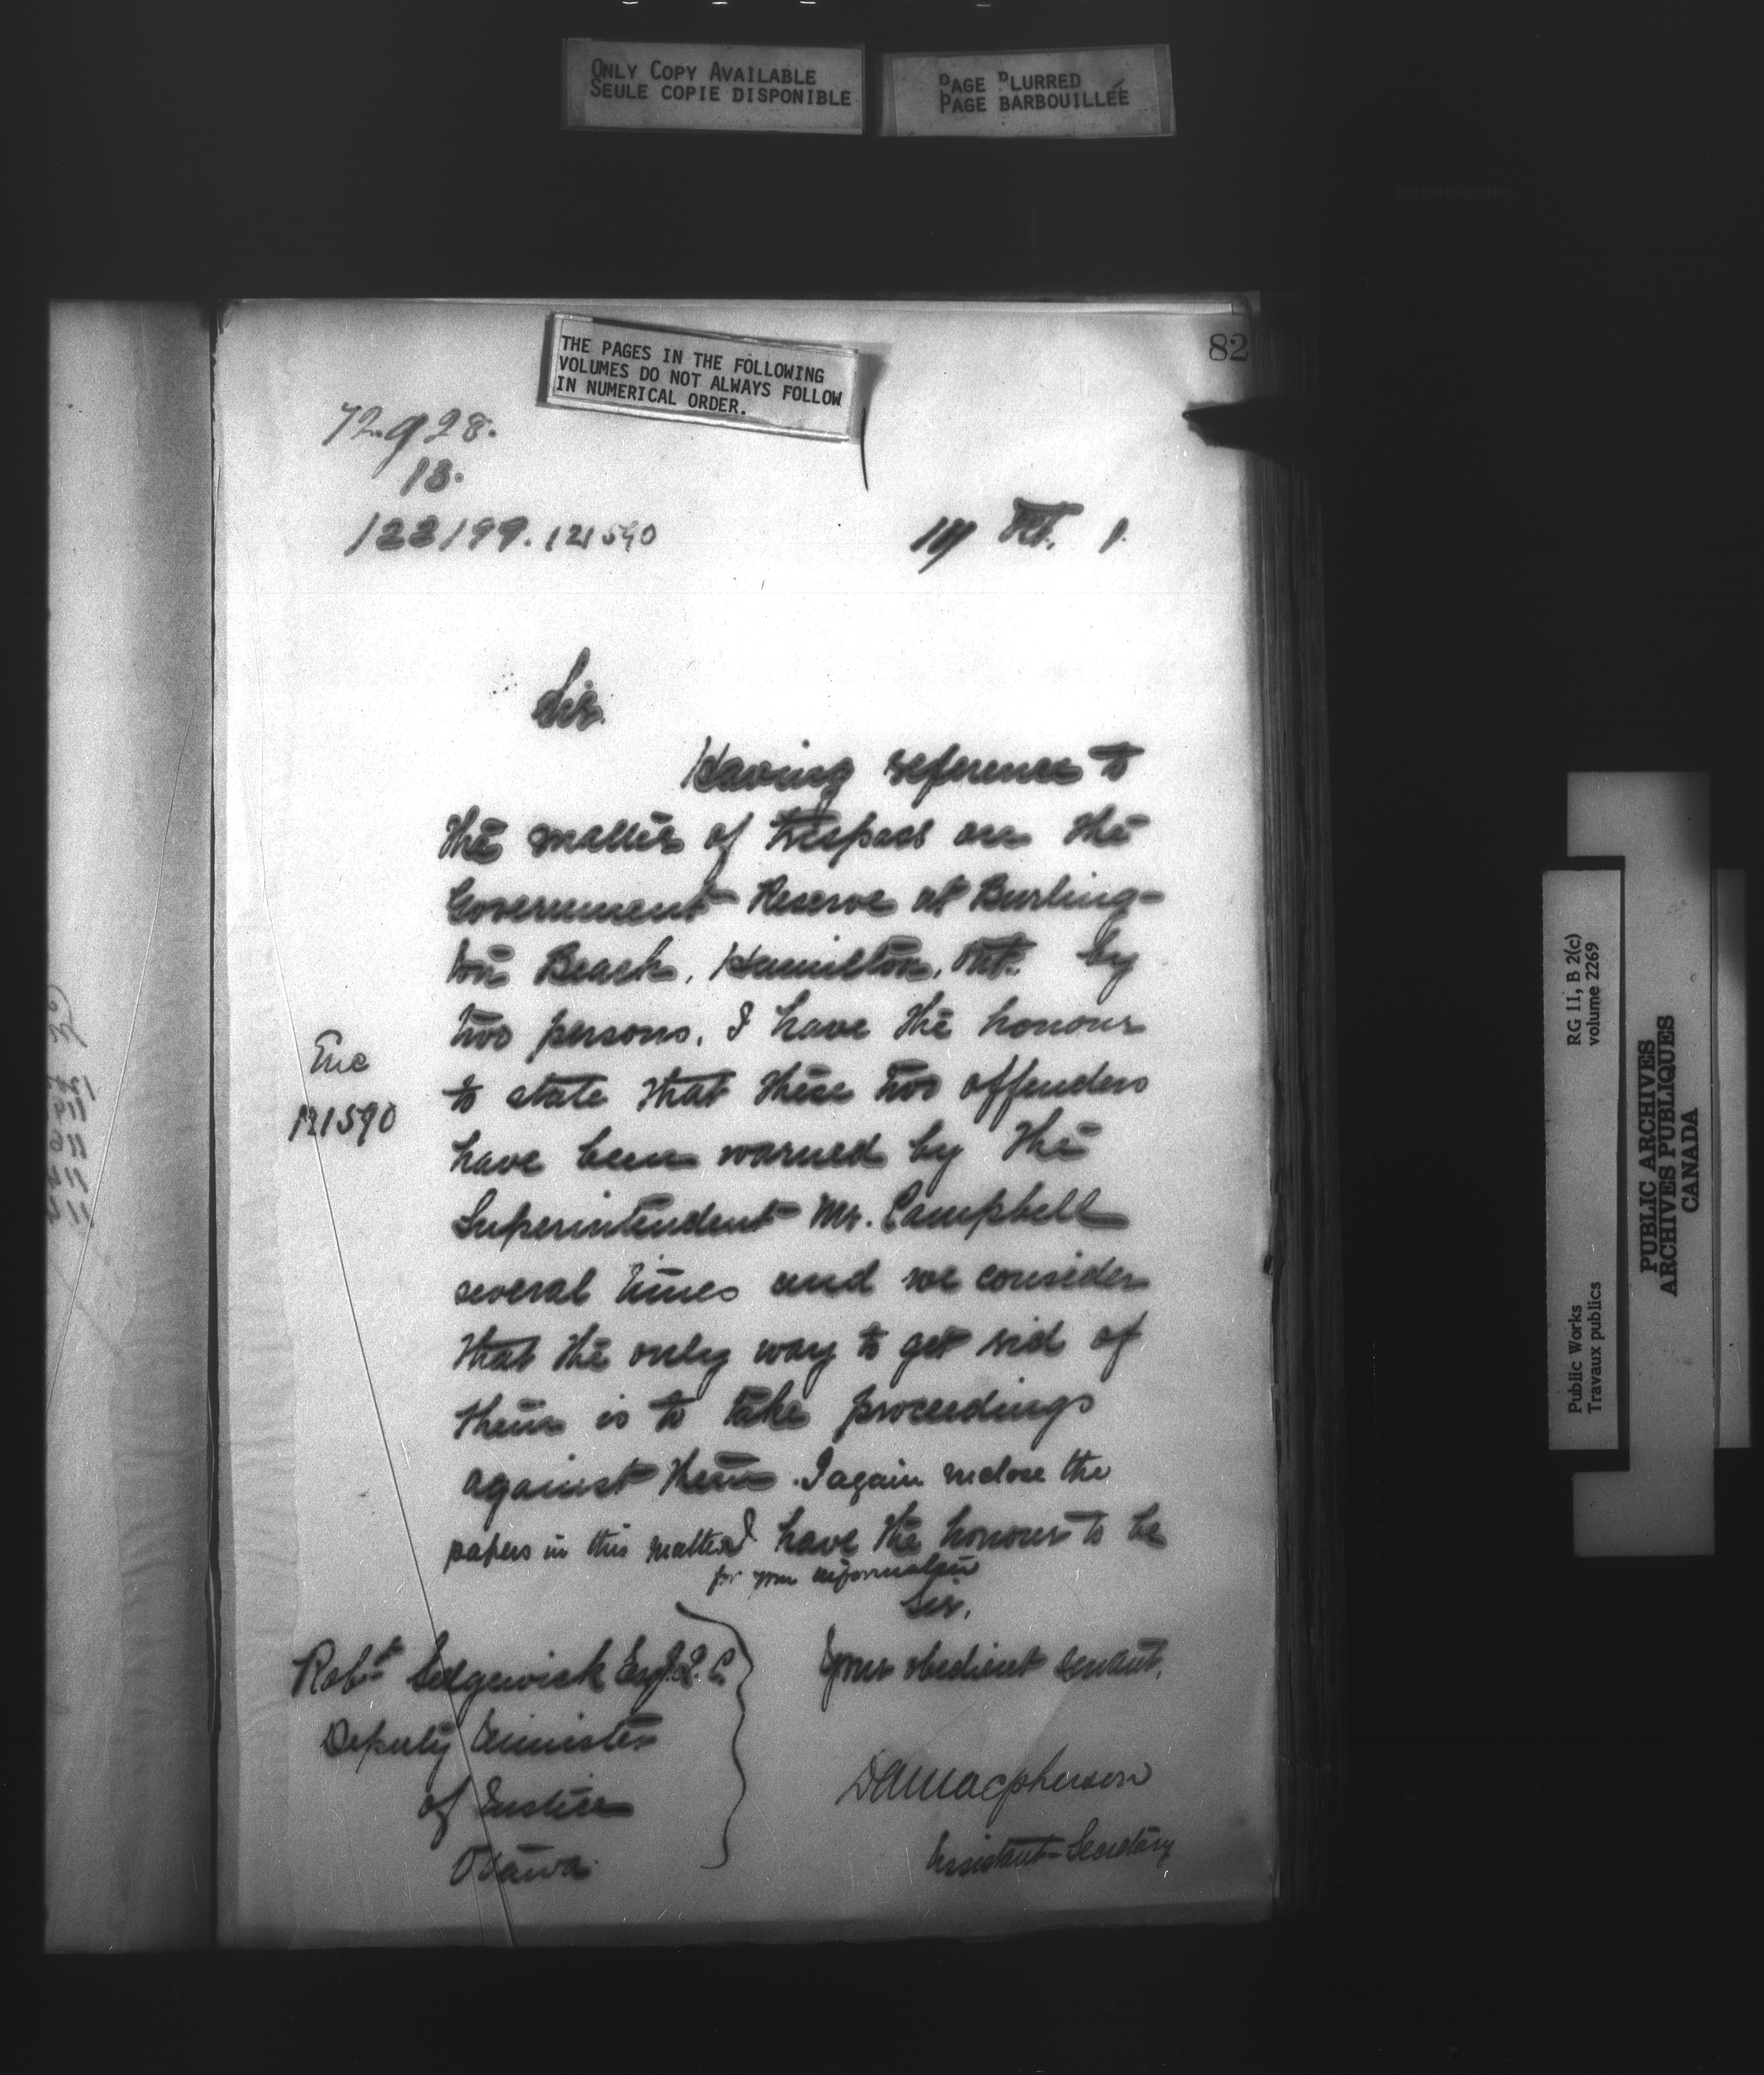 ONLY COPY AVAILABLE
SEULE COPIE DISPONIBLE
PAGE BLURRED
PAGE BARBOUILLÉE
82
THE PAGES IN THE FOLLOWING
VOLUMES DO NOT ALWAYS FOLLOW
IN NUMERICAL ORDER.
72.928.
13.
122199. 121590
Oct. 1.
Sir.
Having reference to
the matter of trespass on the
Government Reserve at Burling-
ton Beach, Hamilton, Ont. by
two persons, I have the honour
Enc
to state that these two offenders
121590
have been warned by the
Superintendent Mr. Campbell
several times and we consider
that the only way to get rid of
them is to take proceedings
against them. I again enclose the
papers in this matter I have the honour to be
for your information
Sir,
Your obedient servant,
Robt Sedgewick Esq. Q.C.
Deputy Minister
of Justice
Ottawa.
D A Macpherson
Assistant-Secretary
RG 11, B 2(c)
volume 2269
Public Works
Travaux publics
PUBLIC ARCHIVES
ARCHIVES PUBLIQUES
CANADA